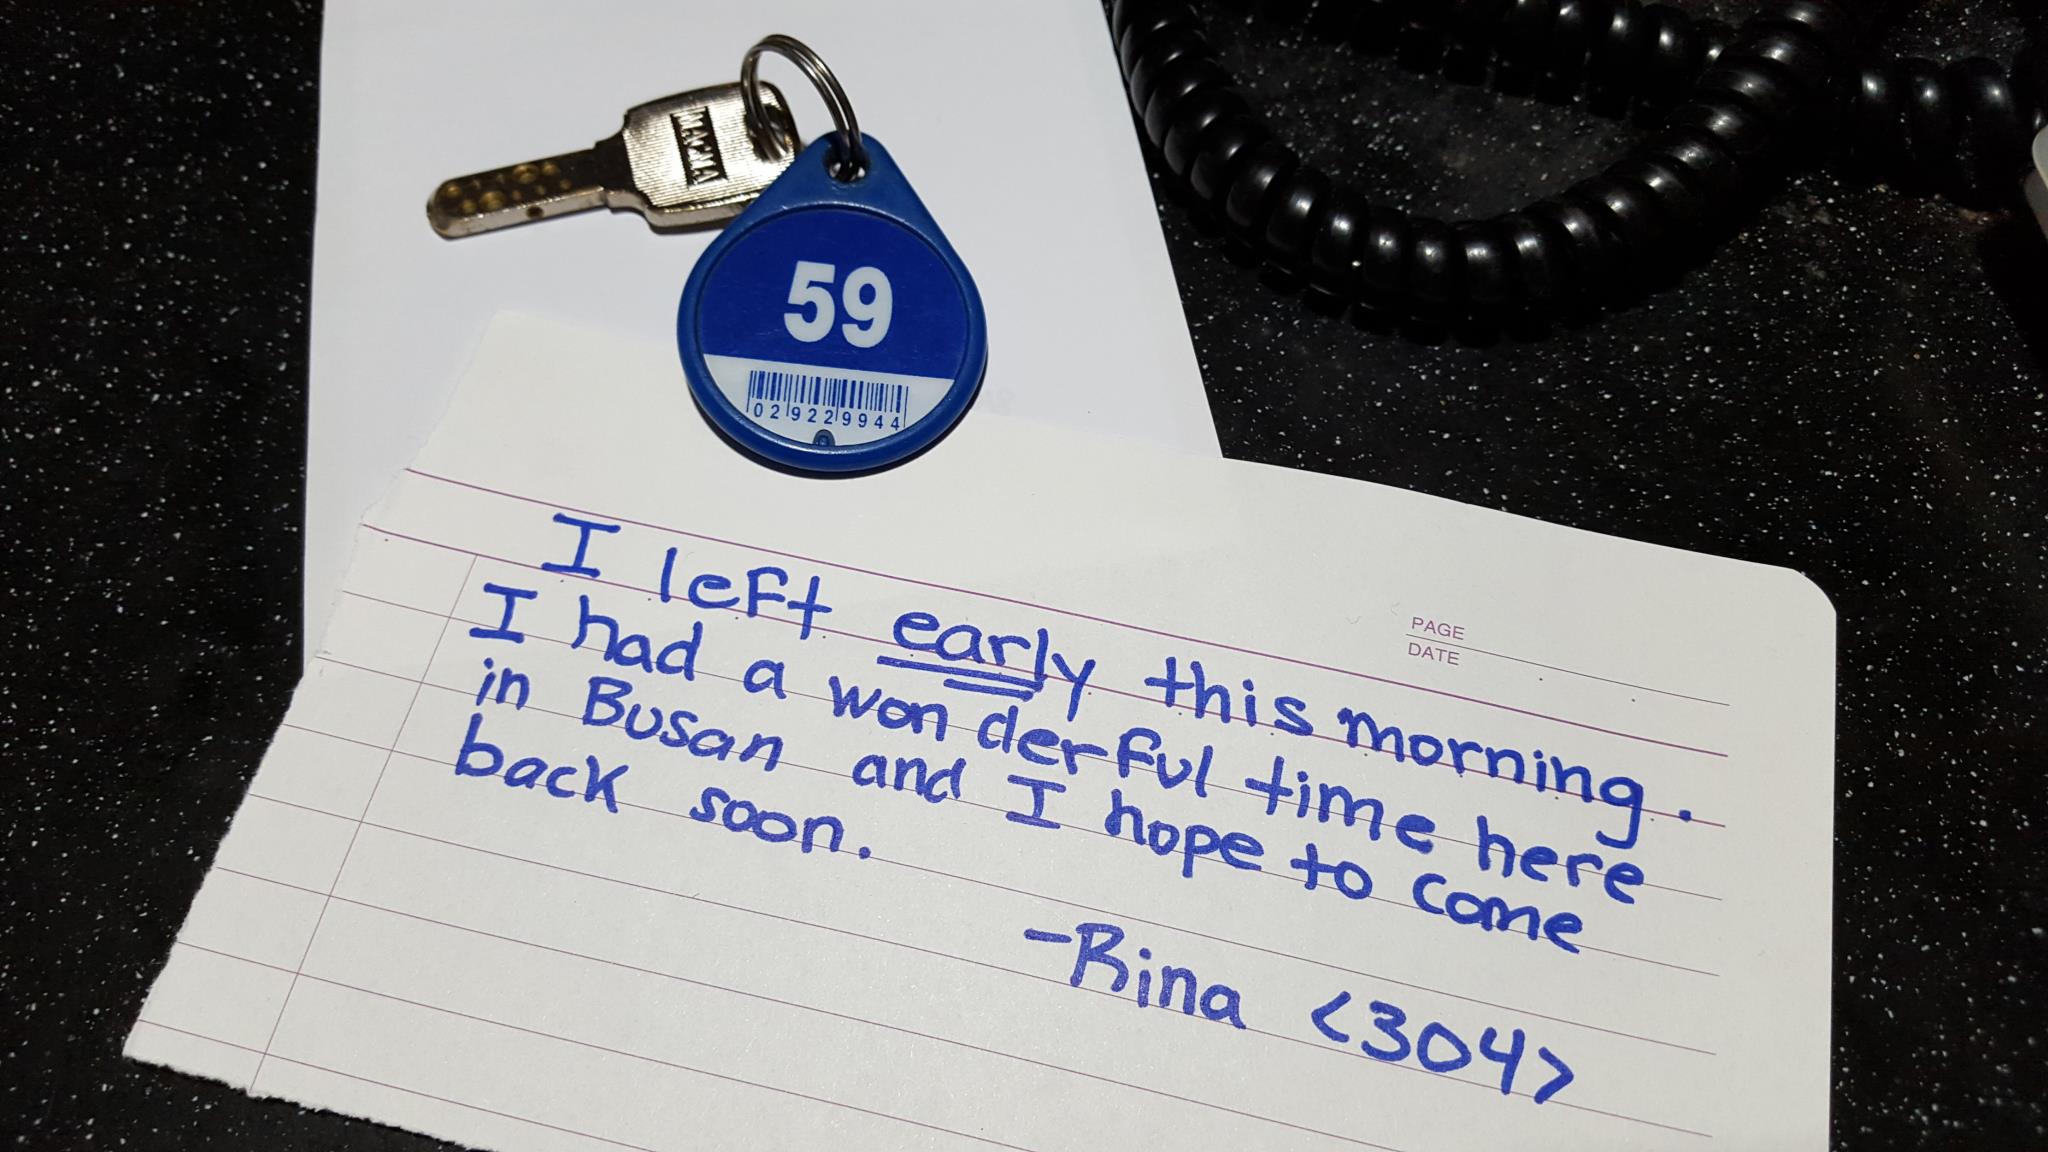 MACNA
59
029229944
PAGE
DATE
I left early this morning.
I had a wonderful time here
in Busan and I hope to come
back soon.
-Rina <304>